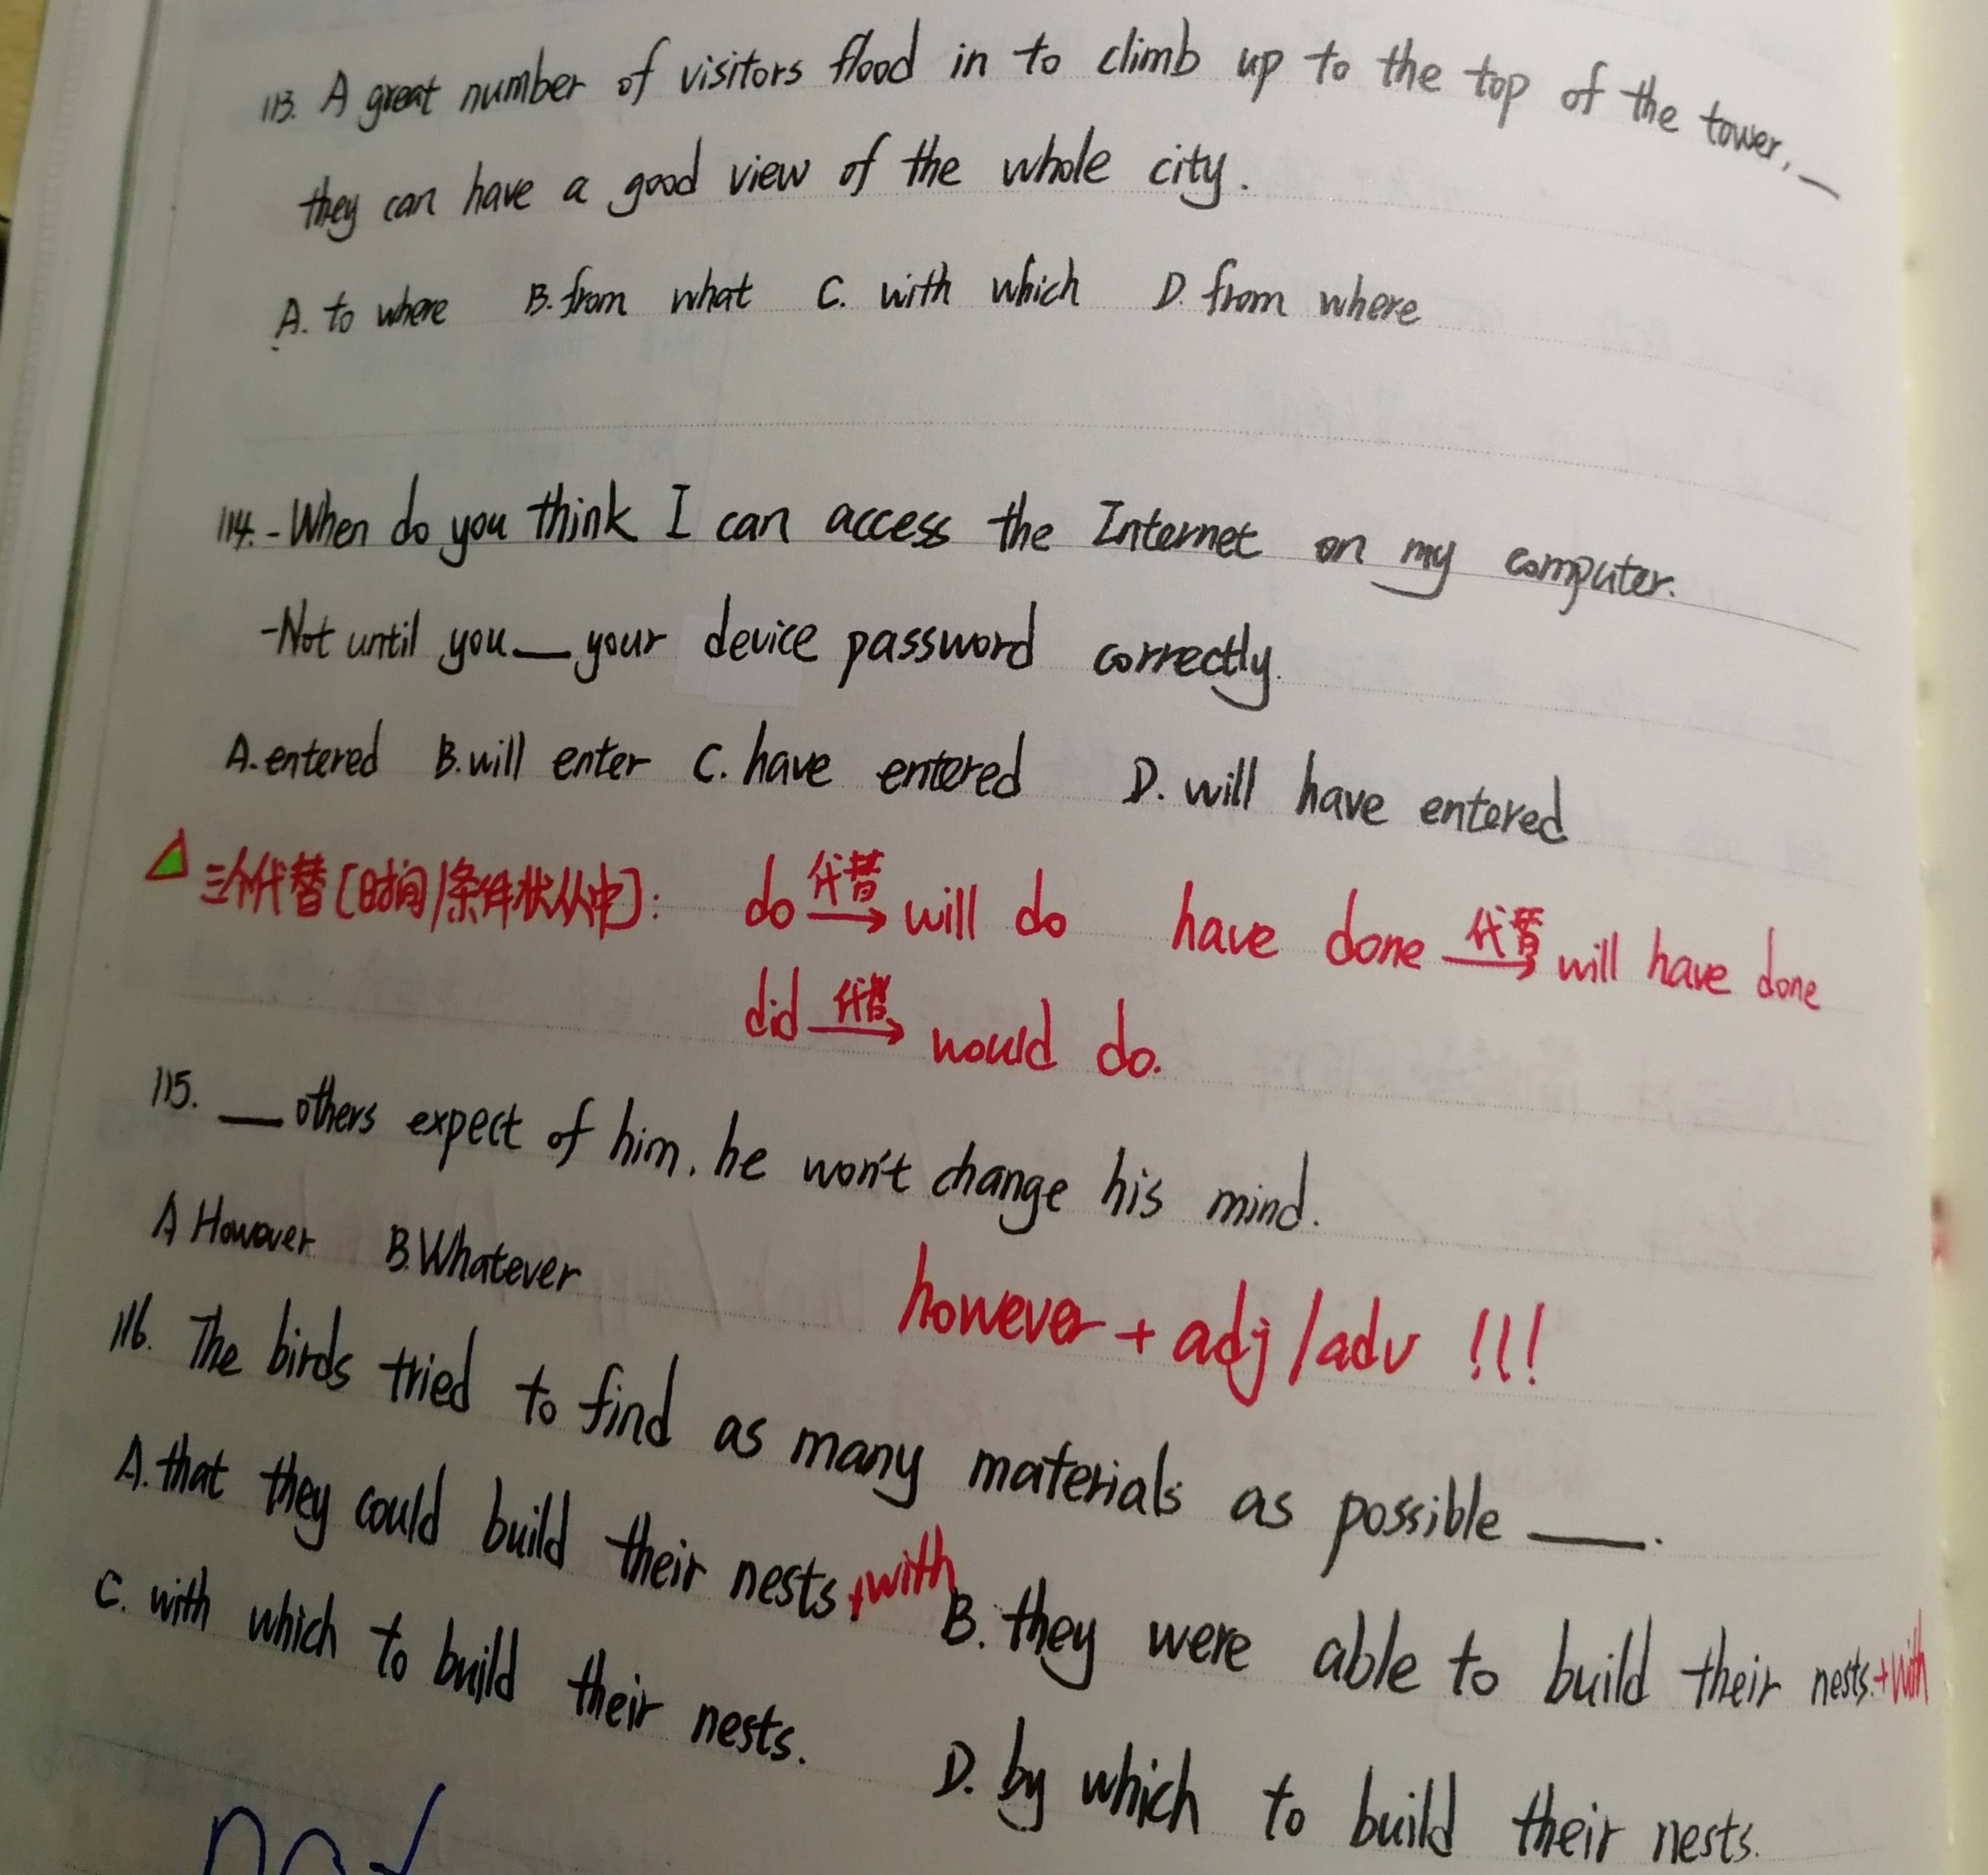 113. A great number of visitors flood in to climb up to the top of the tower, __
they can have a good view of the whole city.
A. to where B. from what C. with which D. from where
114. -When do you think I can access the Internet on my computer.
-Not until you __ your device password correctly.
A. entered B. will enter C. have entered D. will have entered
三个代替[时间/条件状从中]: do 代替→ will do have done 代替→ will have done
did 代替→ would do.
115. __ others expect of him, he won't change his mind.
A However B. Whatever
however + adj/adv !!!
116. The birds tried to find as many materials as possible __.
A. that they could build their nests +with B. they were able to build their nests. +with
C. with which to build their nests. D. by which to build their nests.